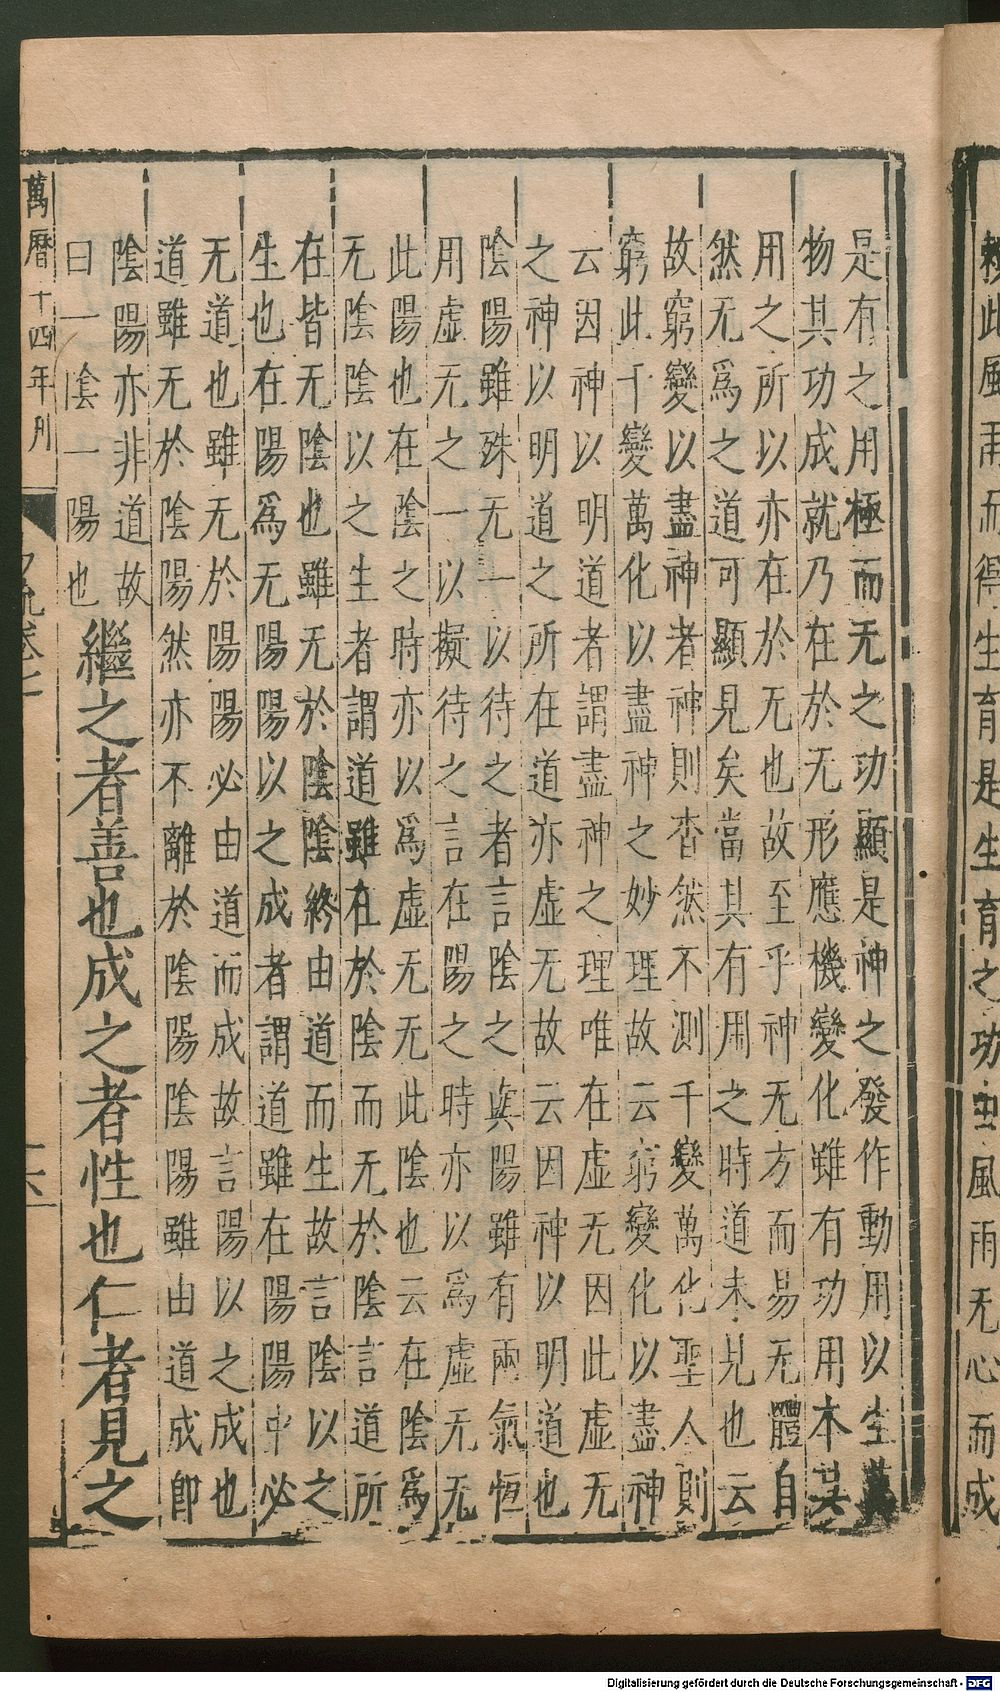 賴此風雨而得生育是生育之功由風雨无心而成
是有之用極而无之功顯是神之發作動用以生萬
物其功成就乃在於无形應機變化雖有功用本其
用之所以亦在於无也故至乎神无方而易无體自
然无爲之道可顯見矣當其有用之時道未見也云
故窮變以盡神者神則杳然不測千變萬化聖人則
窮此千變萬化以盡神之妙理故云窮變化以盡神
云因神以明道者謂盡神之理唯在虛无因此虛无
之神以明道之所在道亦虛无故云因神以明道也
陰陽雖殊无一以待之者言陰之與陽雖有兩氣恆
用虛无之一以擬待之言在陽之時亦以爲虛无无
此陽也在陰之時亦以爲虛无无此陰也云在陰爲
无陰陰以之生者謂道雖在於陰而无於陰言道所
在皆无陰也雖无於陰陰終由道而生故言陰以之
生也在陽爲无陽陽以之成者謂道雖在陽陽中必
无道也雖无於陽陽必由道而成故言陽以之成也
道雖无於陰陽然亦不離於陰陽陰陽雖由道成即
陰陽亦非道故
曰一陰一陽也
繼之者善也成之者性也仁者見之
萬曆十四年刊